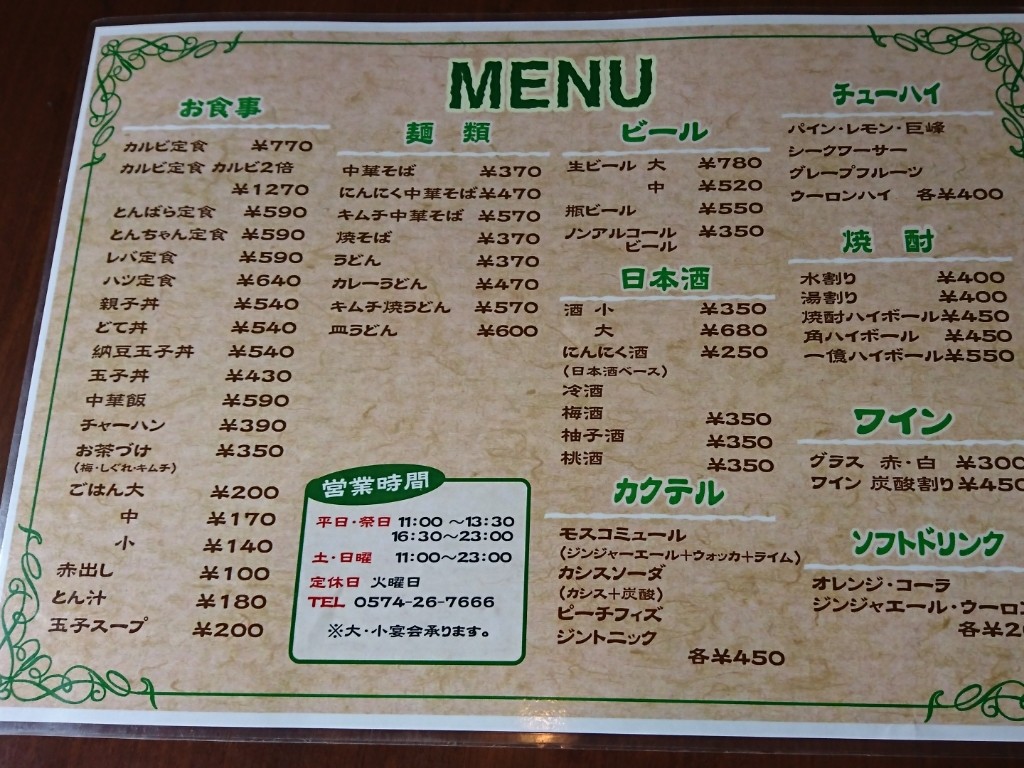 MENU
お食事
カルビ定食 ¥770
カルビ定食 カルビ2倍
¥1270
とんばら定食 ¥590
とんちゃん定食 ¥590
レバ定食 ¥590
ハツ定食 ¥640
親子丼 ¥540
どて丼 ¥540
納豆玉子丼 ¥540
玉子丼 ¥430
中華飯 ¥590
チャーハン ¥390
お茶づけ ¥350
(梅・しぐれ・キムチ)
ごはん大 ¥200
中 ¥170
小 ¥140
赤出し ¥100
とん汁 ¥180
玉子スープ ¥200
麺類
中華そば ¥370
にんにく中華そば ¥470
キムチ中華そば ¥570
焼そば ¥370
うどん ¥370
カレーうどん ¥470
キムチ焼うどん ¥570
皿うどん ¥600
営業時間
平日・祭日 11:00〜13:30
16:30〜23:00
土・日曜 11:00〜23:00
定休日 火曜日
TEL 0574-26-7666
※大・小宴会承ります。
ビール
生ビール 大 ¥780
中 ¥520
瓶ビール ¥550
ノンアルコール ¥350
ビール
日本酒
酒 小 ¥350
大 ¥680
にんにく酒 ¥250
(日本酒ベース)
冷酒
梅酒 ¥350
柚子酒 ¥350
桃酒 ¥350
カクテル
モスコミュール
(ジンジャーエール+ウォッカ+ライム)
カシスソーダ
(カシス+炭酸)
ピーチフィズ
ジントニック
各¥450
チューハイ
パイン・レモン・巨峰
シークワーサー
グレープフルーツ
ウーロンハイ 各¥400
焼酎
水割り ¥400
湯割り ¥400
焼酎ハイボール ¥450
角ハイボール ¥450
一億ハイボール ¥550
ワイン
グラス 赤・白 ¥300
ワイン 炭酸割り ¥450
ソフトドリンク
オレンジ・コーラ
ジンジャエール・ウーロン
各¥20